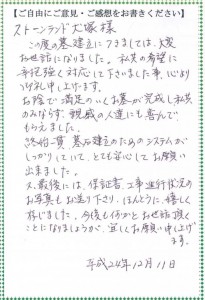 【ご自由にご意見・ご感想をお書きください】
ストーンランド犬塚様
この度の墓建立につきましては、大変
お世話になりました。私共の希望に
手把強く対応して下さいました事、心より
御礼申し上げます。
お陰で満足のいくお墓が完成し私共
のみならず、親戚の人達にも喜んで
もらえました。
終始一貫 墓石建立のためのシステムが
しっかりしていて、とても安心してお願い
出来ました。
又、最後には、保証書、工事進行状況の
お写真もお送り下さり、ほんとうに嬉しく
存じました。今後も何かとお世話頂く
ことになりましょうが、宜しくお願い申し上げ
ます。
平成24年12月11日